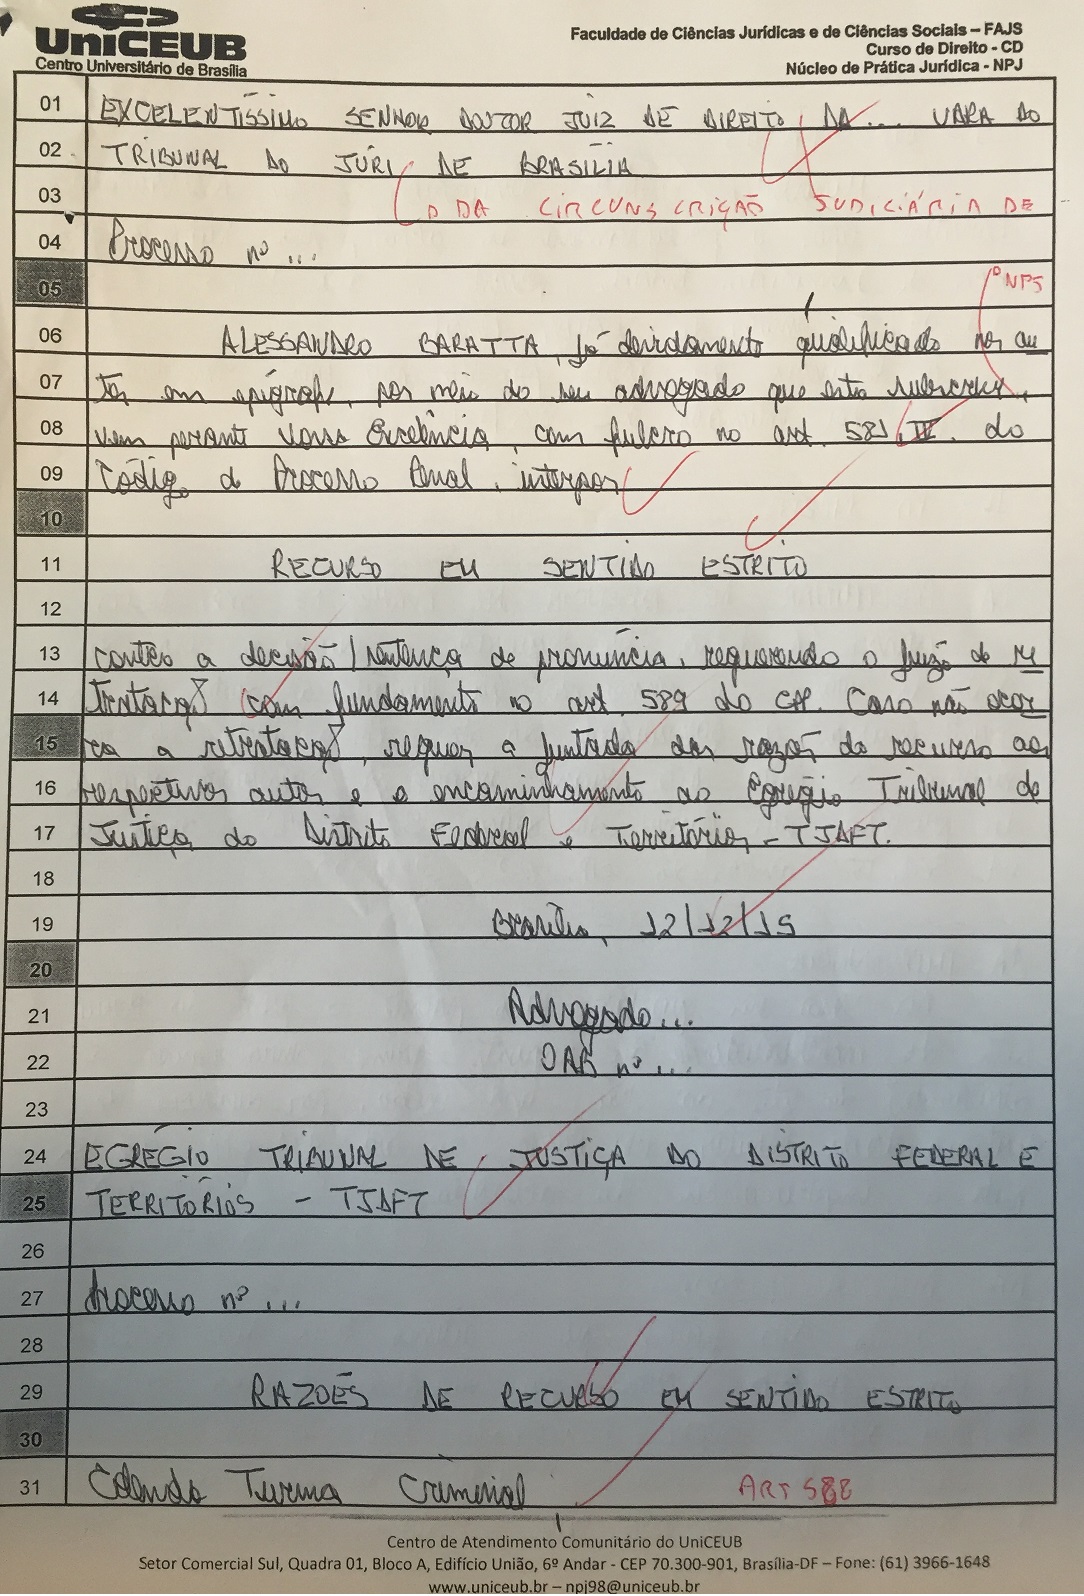 UniCEUB
Centro Universitário de Brasília
Faculdade de Ciências Jurídicas e de Ciências Sociais – FAJS
Curso de Direito - CD
Núcleo de Prática Jurídica - NPJ
01 EXCELENTÍSSIMO SENHOR DOUTOR JUIZ DE DIREITO DA ... VARA DO
02 TRIBUNAL DO JÚRI DE BRASÍLIA
03 DA CIRCUNSCRIÇÃO JUDICIÁRIA DE
04 Processo nº ...
05 NPJ
06 ALESSANDRO BARATTA, já devidamente qualificado nos au
07 tos em epígrafe, por meio do seu advogado que esta subscreve,
08 vem perante Vossa Excelência, com fulcro no art. 581, IV, do
09 Código de Processo Penal, interpor
10
11 RECURSO EM SENTIDO ESTRITO
12
13 contra a decisão/sentença de pronúncia, requerendo o juízo de re
14 tratação com fundamento no art. 589 do CPP. Caso não ocor
15 ra a retratação, requer a juntada das razões do recurso aos
16 respectivos autos e o encaminhamento ao Egrégio Tribunal de
17 Justiça do Distrito Federal e Territórios - TJDFT.
18
19 Brasília, 12/12/15
20
21 Advogado...
22 OAB nº ...
23
24 EGRÉGIO TRIBUNAL DE JUSTIÇA DO DISTRITO FEDERAL E
25 TERRITÓRIOS - TJDFT
26
27 Processo nº ...
28
29 RAZÕES DE RECURSO EM SENTIDO ESTRITO
30
31 Colenda Turma Criminal ART 588
Centro de Atendimento Comunitário do UniCEUB
Setor Comercial Sul, Quadra 01, Bloco A, Edifício União, 6º Andar - CEP 70.300-901, Brasília-DF – Fone: (61) 3966-1648
www.uniceub.br – npj98@uniceub.br